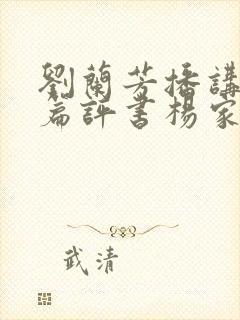 劉蘭芳播講
篇評書楊家
武清